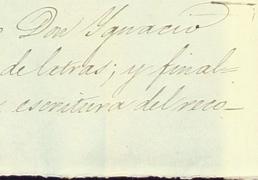 Don Ygnacio
de letras; y final=
escritura del reco-